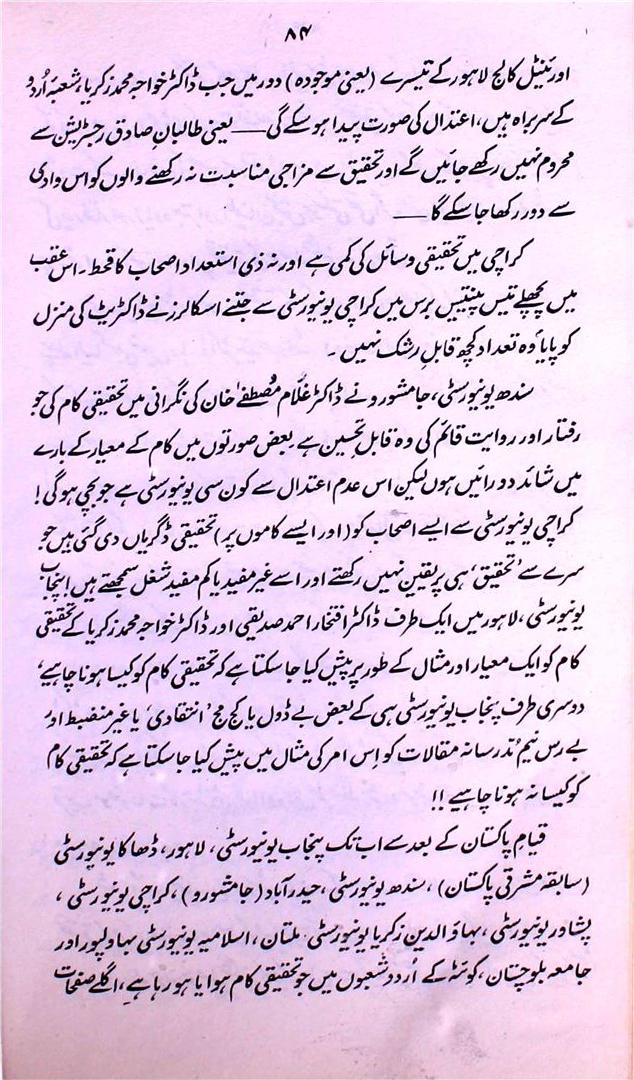 ۸۴
اورئینٹل کالج لاہور کے تیسرے (یعنی موجودہ) دور میں جب ڈاکٹر خواجہ محمد زکریا، شعبۂ اُردو
کے سربراہ ہیں، اعتدال کی صورت پیدا ہو سکے گی — یعنی طالبانِ صادق رجسٹریشن سے
محروم نہیں رکھے جائیں گے اور تحقیق سے مزاجی مناسبت نہ رکھنے والوں کو اس وادی
سے دور رکھا جا سکے گا —
کراچی میں تحقیقی وسائل کی کمی ہے اور نہ ذی استعداد اصحاب کا قحط۔ اس عقب
میں پچھلے تیس پینتیس برس میں کراچی یونیورسٹی سے جتنے اسکالرز نے ڈاکٹریٹ کی منزل
کو پایا وہ تعداد کچھ قابلِ رشک نہیں ۔
سندھ یونیورسٹی، جامشورو نے ڈاکٹر غلام مصطفےٰ خان کی نگرانی میں تحقیقی کام کی جو
رفتار اور روایت قائم کی وہ قابلِ تحسین ہے بعض صورتوں میں کام کے معیار کے بارے
میں شائد دو رائیں ہوں لیکن اس عدم اعتدال سے کون سی یونیورسٹی ہے جو بچی ہو گی!
کراچی یونیورسٹی سے ایسے اصحاب کو (اور ایسے کاموں پر) تحقیقی ڈگریاں دی گئی ہیں جو
سرے سے ’تحقیق‘ ہی پر یقین نہیں رکھتے اور اسے غیر مفید یا کم مفید شغل سمجھتے ہیں! پنجاب
یونیورسٹی، لاہور میں ایک طرف ڈاکٹر افتخار احمد صدیقی اور ڈاکٹر خواجہ محمد زکریا کے تحقیقی
کام کو ایک معیار اور مثال کے طور پر پیش کیا جا سکتا ہے کہ تحقیقی کام کو کیسا ہونا چاہیے،
دوسری طرف پنجاب یونیورسٹی ہی کے بعض بے ڈول یا کج مج ’انتقادی‘ یا غیر منضبط اور
بے رس نیم تدرسانہ مقالات کو اِس امر کی مثال میں پیش کیا جا سکتا ہے کہ تحقیقی کام
کو کیسا نہ ہونا چاہیے !!
قیامِ پاکستان کے بعد سے اب تک پنجاب یونیورسٹی، لاہور، ڈھاکا یونیورسٹی
(سابقہ مشرقی پاکستان)، سندھ یونیورسٹی، حیدرآباد (جامشورو)، کراچی یونیورسٹی،
پشاور یونیورسٹی، بہاؤ الدین زکریا یونیورسٹی ملتان، اسلامیہ یونیورسٹی بہاولپور اور
جامعہ بلوچستان، کوئٹہ کے اُردو شعبوں میں جو تحقیقی کام ہوا یا ہو رہا ہے، اگلے صفحات